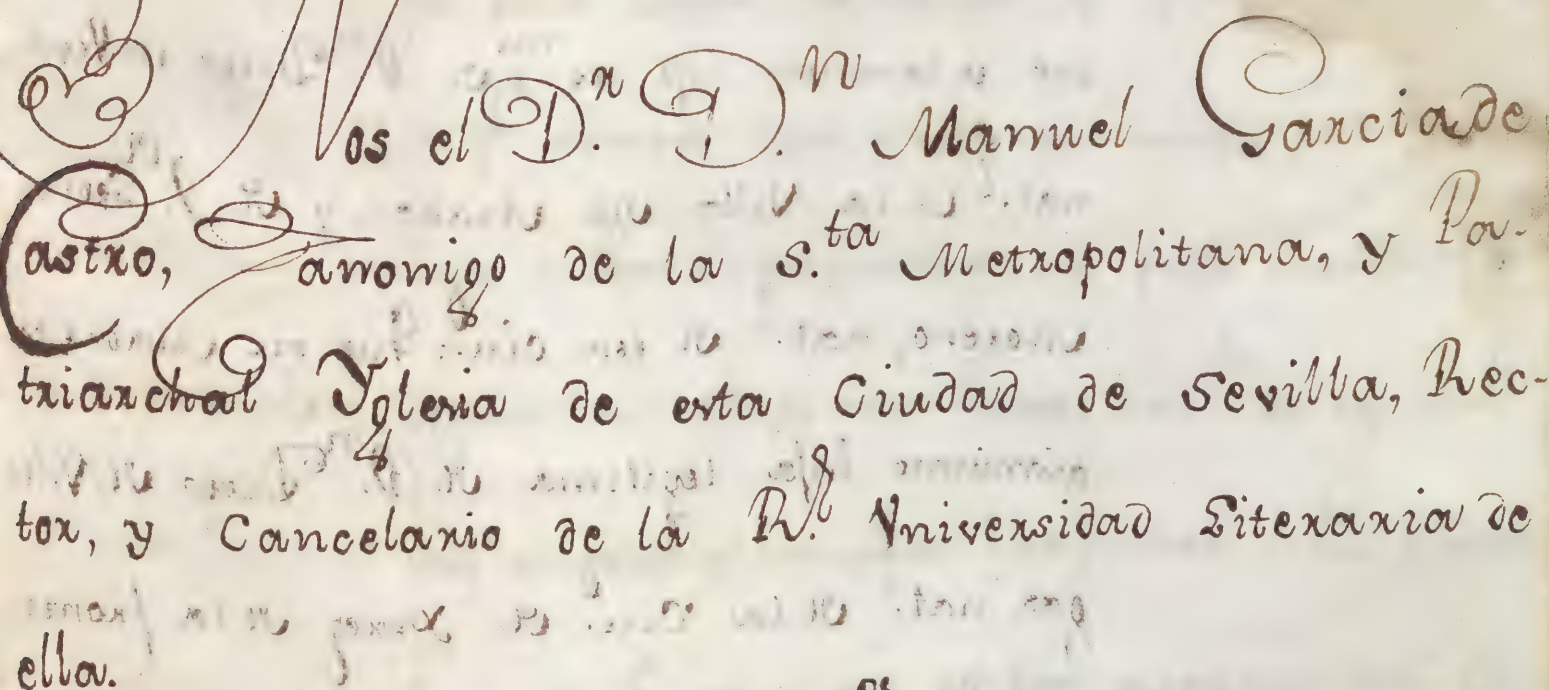 Nos el D.n D.n Manuel Garcia de
Castro, Canonigo de la S.ta Metropolitana, y Pa-
triarchal Yglesia de esta Ciudad de Sevilla, Rec-
tor, y Cancelario de la R.l Vniversidad Literaria de
ella.